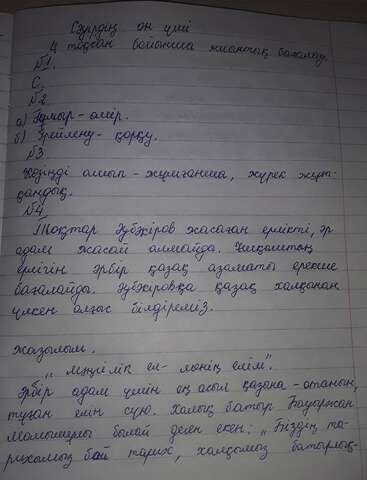 Сәуірдің он үші
4 тоқсан бойынша жиынтық бағалау.
№1.
С.
№2
а) Ғұмыр - өмір.
б) Үрейлену - қорқу.
№3
Көзіңді ашып - жұмғанша, жүрек жұт-
қандық.
№4
Тоқтар Әубәкіров жасаған ерлікті, әр
адам жасай алмайды. Ұшқыштың
ерлігін әрбір қазақ азаматы ерекше
бағалайды. Әубәкіровқа қазақ халқынан
үлкен алғыс білдіреміз.
жазылым.
„ Мәңгілік ел - менің елім".
Әрбір адам үшін ең асыл қазына - отанын,
туған елін сүю. Халық батыр Бауыржан
Момышұлы былай деген екен: „ Біздің та-
рихымыз бай тарих, халқымыз батырлық-